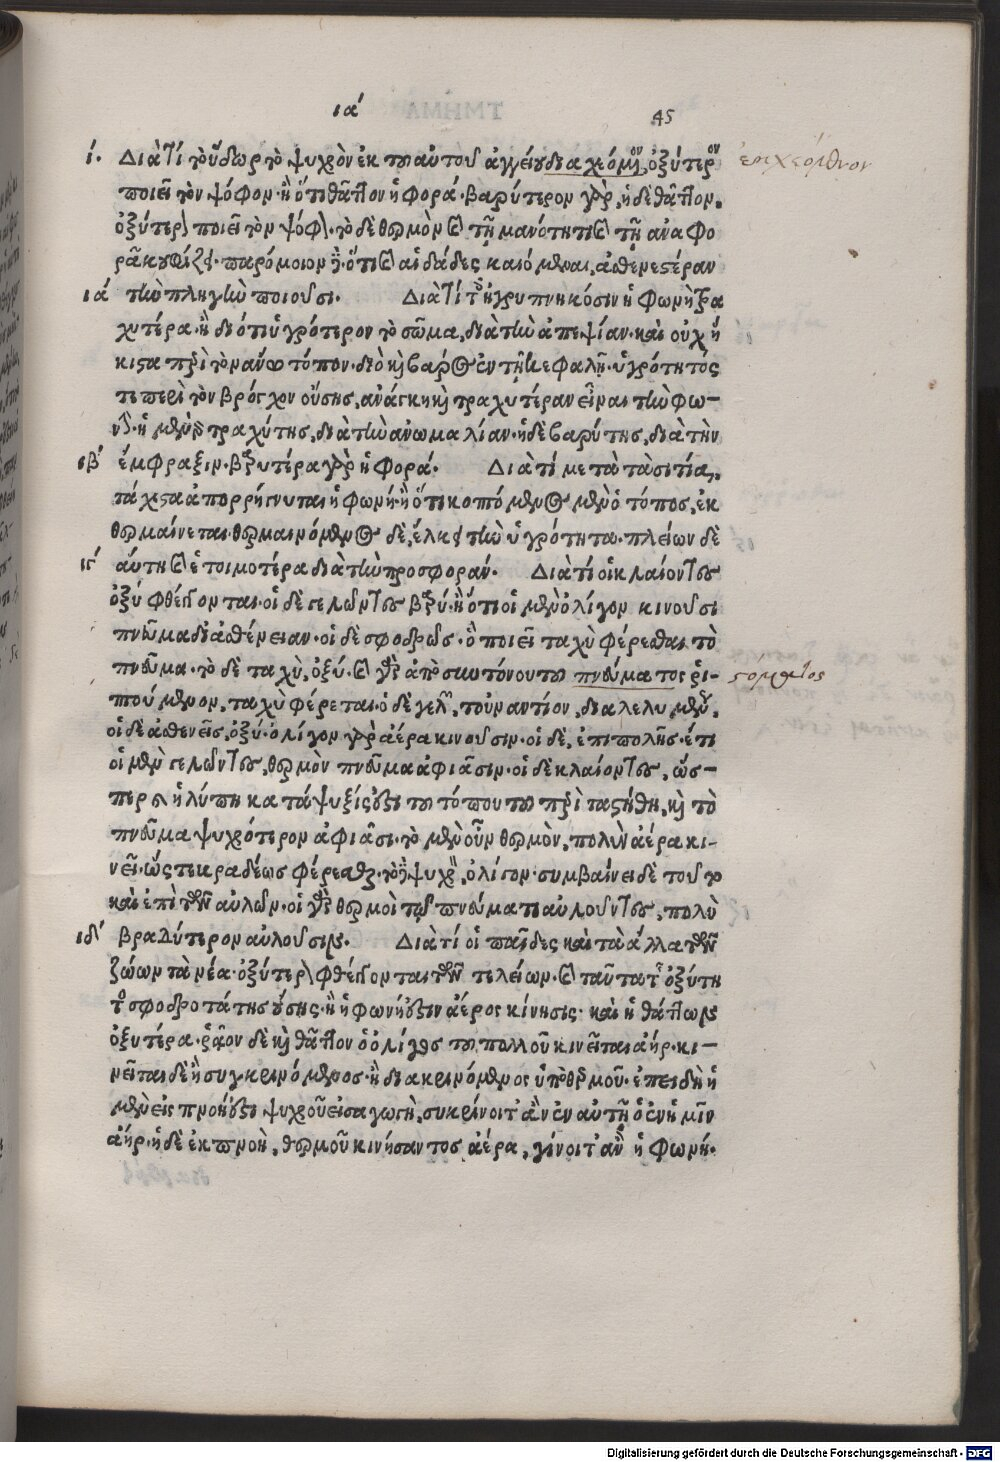 ια΄ 45
ί. Διατί τὸ ὕδωρ τὸ ψυχρὸν ἐκ τοῦ αὐτοῦ ἀγγείου διαχεόμενον, ὀξύτερον ἐπιχεόμενον
ποιεῖ τὸν ψόφον· ἢ ὅτι θᾶττον ἡ φορά· βαρύτερον γὰρ, ἡ δὲ θᾶττον,
ὀξύτερον ποιεῖ τὸν ψόφον· τὸ δὲ θερμὸν καὶ τῇ μανότητι καὶ τῇ ἀναφο
ρᾶ κουφίζει· παρόμοιον δὲ ὅτι καὶ αἱ δᾷδες καιόμεναι, ἀσθενεστέραν
ια΄ τὴν πληγὴν ποιοῦσι. Διατί τοῖς ἠγρυπνηκόσιν ἡ φωνὴ τρα
χυτέρα· ἢ διότι ὑγρότερον τὸ σῶμα, διὰ τὴν ἀπεψίαν· καὶ οὐχ ἥ
κιστα περὶ τὸν ἄνω τόπον· διὸ καὶ βαρος ἐν τῇ κεφαλῇ· ὑγρότητος
τε περὶ τὸν βρόγχον οὔσης, ἀνάγκη καὶ τραχυτέραν εἶναι τὴν φω-
νήν· ἡ μὲν γὰρ τραχύτης, διὰ τὴν ἀνωμαλίαν· ἡ δὲ βαρύτης, διὰ τὴν
ιβ΄ ἔμφραξιν· βραδυτέρα γὰρ ἡ φορά. Διὰ τί μετὰ τὰ σιτία,
τάχιστα ἀπορρήγνυται ἡ φωνή· ἢ ὅτι κοπτόμενος μὲν ὁ τόπος, ἐκ
θερμαίνεται· θερμαινόμενος δὲ, ἕλκει τὴν ὑγρότητα· πλείων δὲ
ιγ΄ αὕτη καὶ ἑτοιμοτέρα διὰ τὴν προσφοράν. Διατί οἱ κλαίοντες
ὀξὺ φθέγγονται· οἱ δὲ γελῶντες βαρύ· ἢ ὅτι οἱ μὲν ὀλίγον κινοῦσι
πνεῦμα δι' ἀσθένειαν· οἱ δὲ σφοδρῶς· ὃ ποιεῖ ταχὺ φέρεσθαι τὸ
πνεῦμα· τὸ δὲ ταχὺ, ὀξύ· καὶ γὰρ ἀπὸ συντόνου τοῦ πνεύματος ῥι- στόματος
πτούμενον, ταχὺ φέρεται· ὁ δὲ γελῶν, τοὐναντίον, διαλελυμένως.
οἱ δὲ ἀσθενεῖς, ὀξύ· ὀλίγον γὰρ ἀέρα κινοῦσιν· οἱ δὲ, ἐπιπολῆς· ἔτι
οἱ μὲν γελῶντες, θερμὸν πνεῦμα ἀφιᾶσιν· οἱ δὲ κλαίοντες, ὥσ-
περ καὶ ἡ λύπη κατάψυξίς ἐστι τοῦ τόπου τοῦ περὶ τὰ στήθη, καὶ τὸ
πνεῦμα ψυχρότερον ἀφιᾶσι· τὸ μὲν οὖν θερμὸν, πολὺν ἀέρα κι-
νεῖ· ὥστε βραδέως φέρεσθαι· τὸ δὲ ψυχρὸν, ὀλίγον· συμβαίνει δὲ τοῦτο
καὶ ἐπὶ τῶν αὐλῶν· οἱ γὰρ θερμοὶ τῷ πνεύματι αὐλοῦντες, πολὺ
ιδ΄ βραδύτερον αὐλοῦσιν. Διὰ τί οἱ παῖδες καὶ τὰ ἄλλα τῶν
ζώων τὰ νέα· ὀξύτερον φθέγγονται τῶν τελείων· καὶ ταῦτα τῆς ὀξύτη
τος σφοδροτάτης οὔσης· ἢ ἡ φωνή ἐστιν ἀέρος κίνησις· καὶ ἡ θᾶττων
ὀξυτέρα· ῥᾷον δὲ καὶ θᾶττον ὁ ὀλίγος τοῦ πολλοῦ κινεῖται ἀήρ· κι-
νεῖται δὲ ἢ συγκρινόμενος· ἢ διακρινόμενος ὑπὸ θερμοῦ· ἐπειδὴ ἡ
μὲν εἰσπνοή ἐστι ψυχροῦ εἰσαγωγὴ, συγκρίνοιτ' ἂν ἐν αὐτῇ ὁ ἐν ἡμῖν
ἀήρ· ἡ δὲ ἐκπνοὴ, θερμοῦ κινήσαντος ἀέρα, γίνοιτ' ἂν ἡ φωνή.
Digitalisierung gefördert durch die Deutsche Forschungsgemeinschaft - DFG